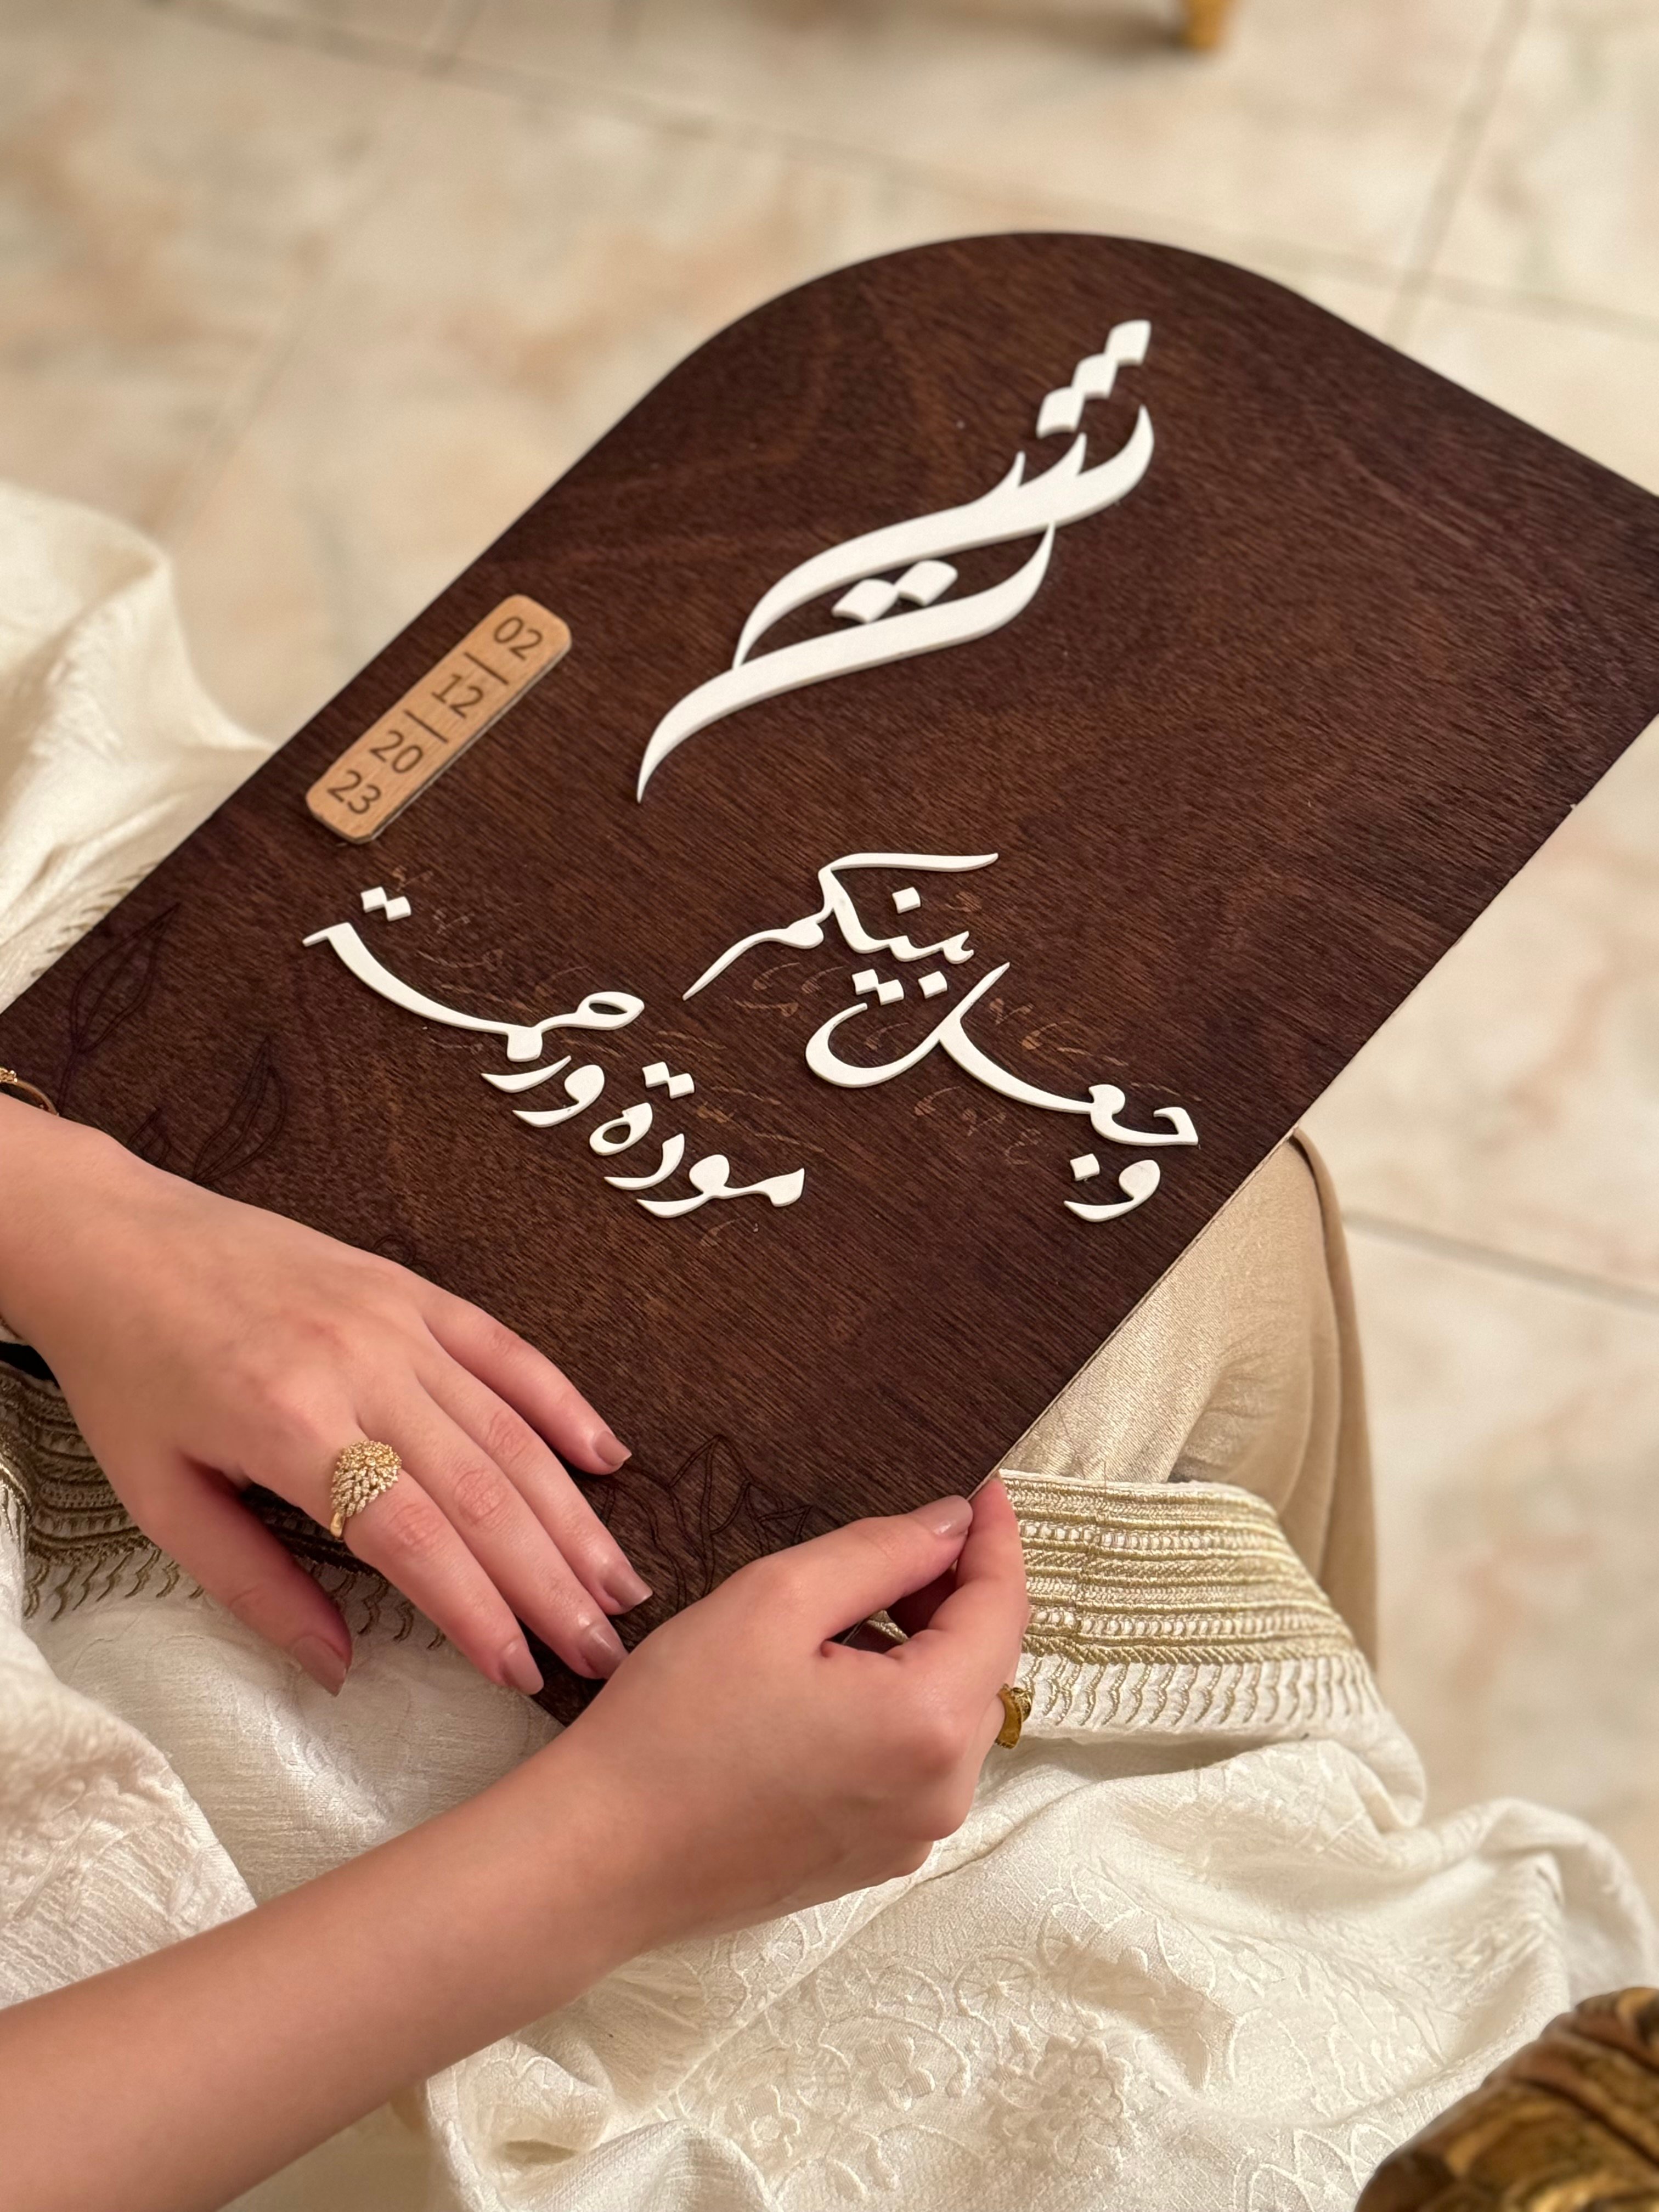 02
12
20
23
وجعل بينكم
مودة ورحمة